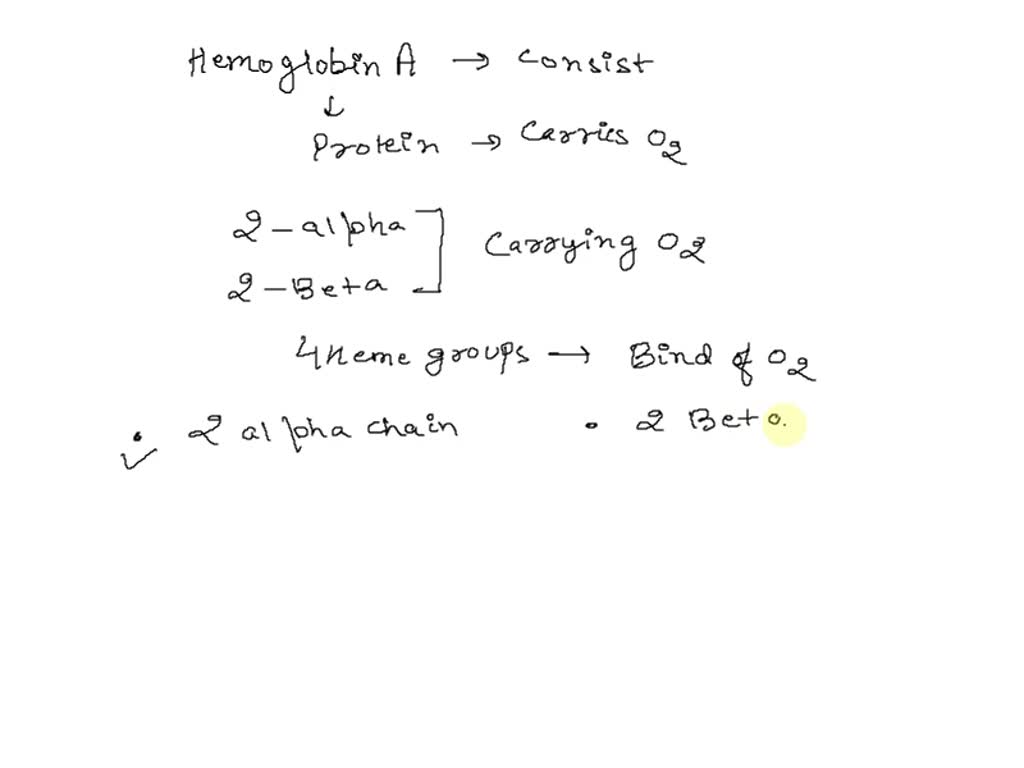 Hemoglobin A → Consist
↓
Protein → Carries O2
2 - alpha
2 - Beta ] Carrying O2
4 Heme groups → Bind of O2
✓ • 2 alpha chain • 2 Beta